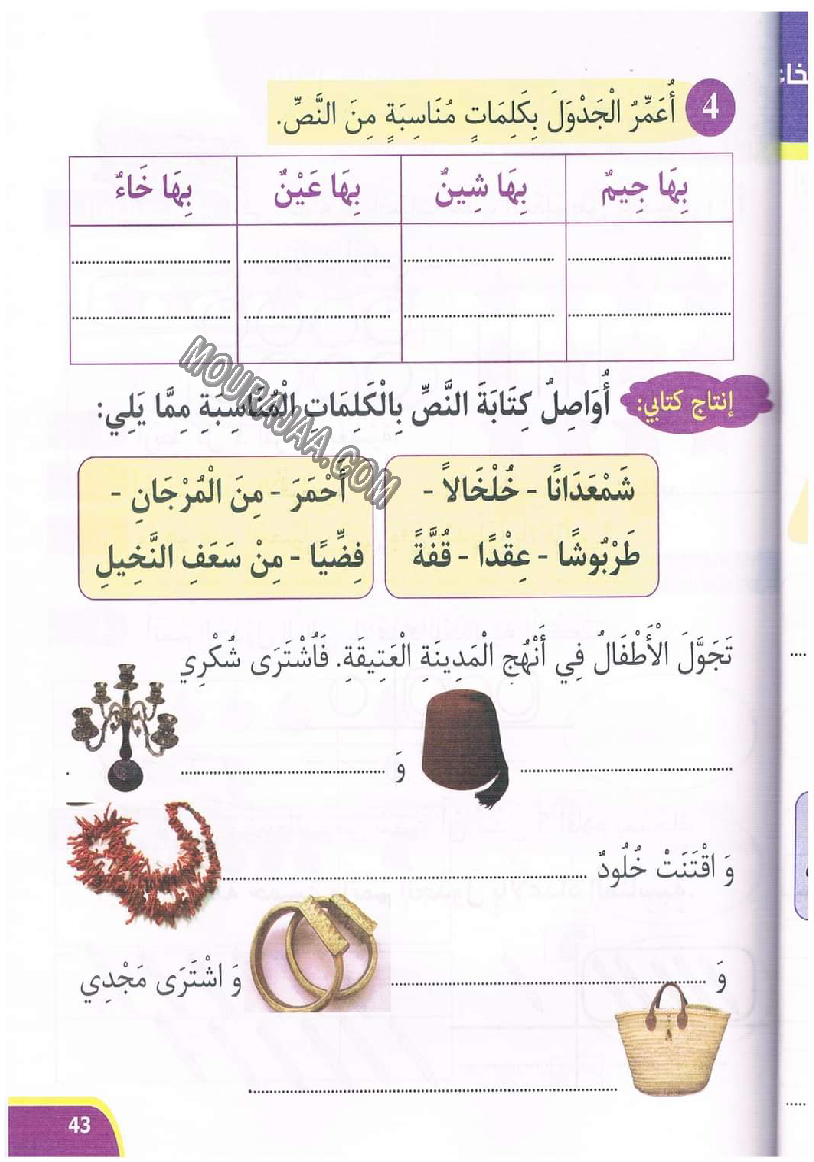 4 أُعَمِّرُ الْجَدْوَلَ بِكَلِمَاتٍ مُنَاسِبَةٍ مِنَ النَّصِّ.
بِهَا جِيمٌ بِهَا شِينٌ بِهَا عَيْنٌ بِهَا خَاءٌ
إنتاج كتابي: أُوَاصِلُ كِتَابَةَ النَّصِّ بِالْكَلِمَاتِ الْمُنَاسِبَةِ مِمَّا يَلِي:
MOURAJAA.COM
شَمْعَدَانًا - خُلْخَالاً -
طَرْبُوشًا - عِقْدًا - قُفَّةً
أَحْمَرَ - مِنَ الْمُرْجَانِ -
فِضِّيًا - مِنْ سَعَفِ النَّخِيلِ
تَجَوَّلَ الْأَطْفَالُ فِي أَنْهُجِ الْمَدِينَةِ الْعَتِيقَةِ. فَاُشْتَرَى شُكْرِي
........ وَ ........ .
وَ اقْتَنَتْ خُلُودٌ ........
وَ ........ وَ اشْتَرَى مَجْدِي
........
43